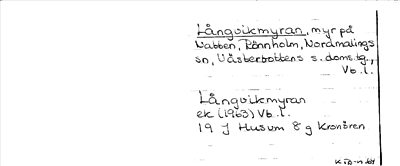 Långvikmyran, myr på
Nabben, Rönnholm, Nordmalings
sn, Västerbottens s. doms.tg.,
Vb. l.
Långvikmyran
ek (1963) Vb. l.
19 J Husum 8 g Kronören